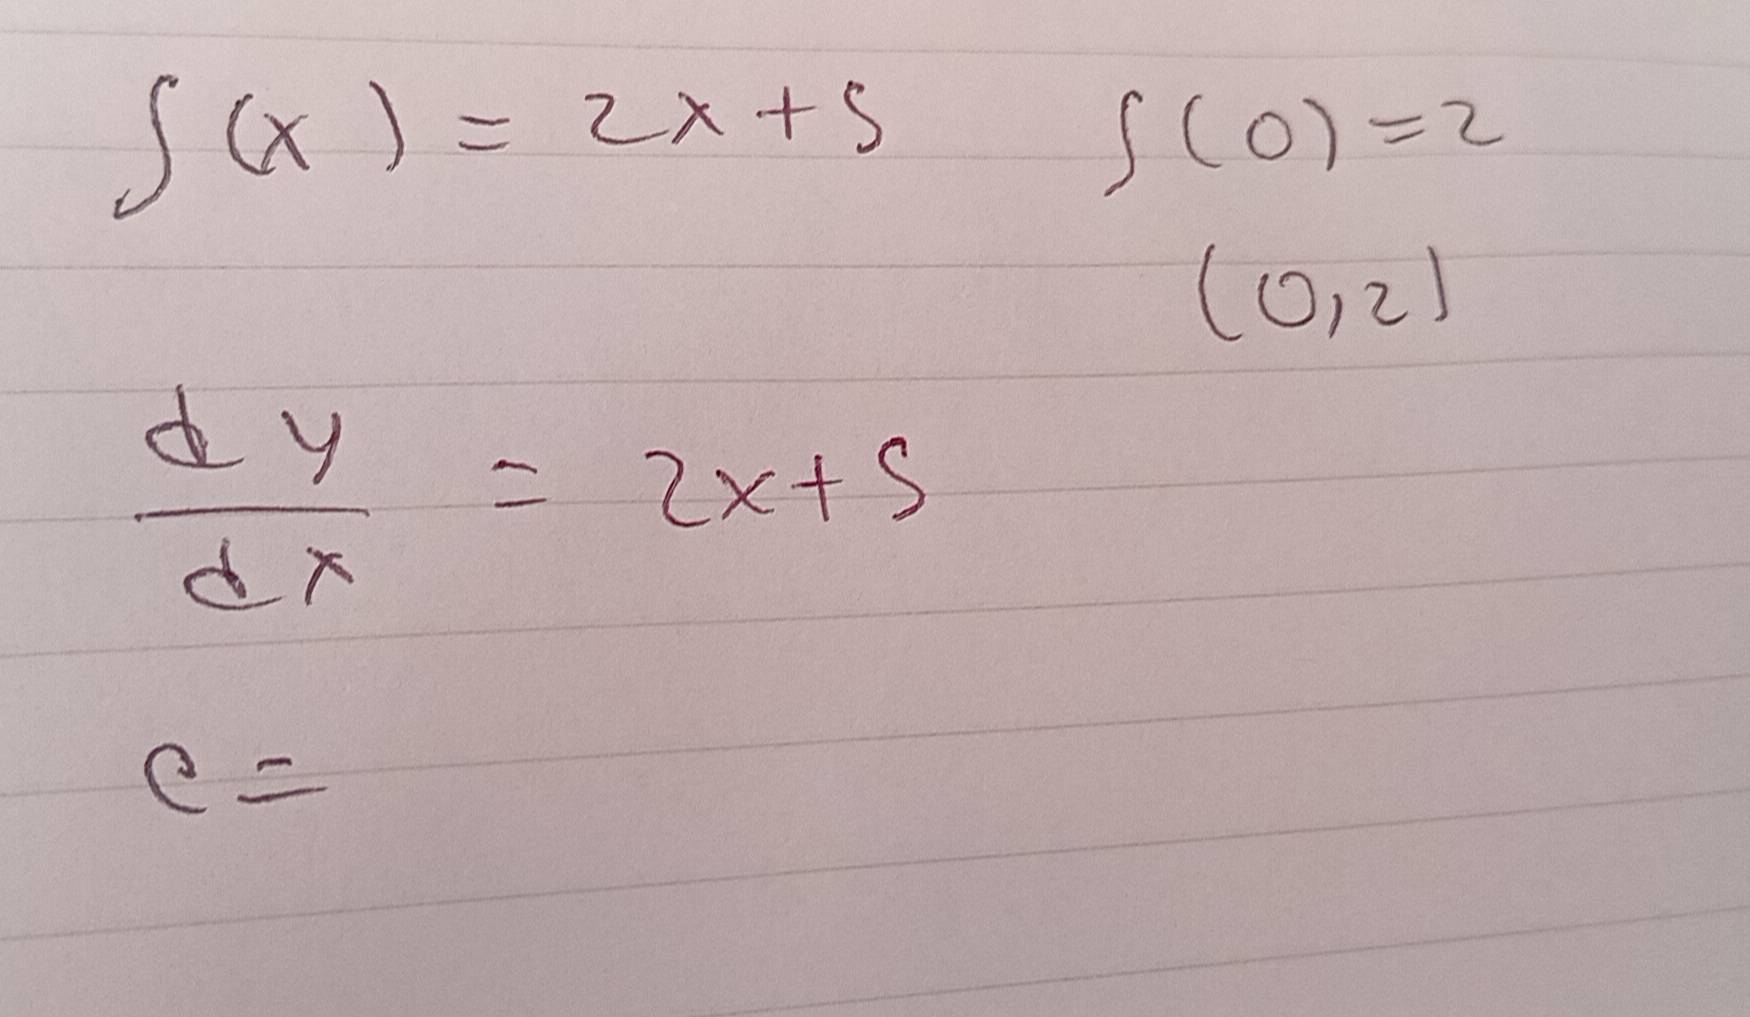 f(x) = 2x+5 f(0)=2
(0,2)
dy/dx = 2x+5
c=